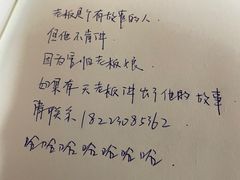 老板是个有故事的人.
但他不肯讲.
因为害怕老板娘.
如果有天老板讲出了他的故事
请联系18223085362
哈哈哈哈哈哈哈.